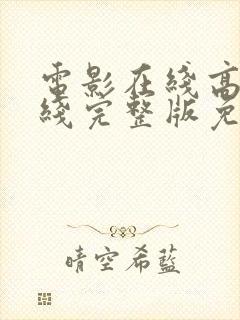 電影在綫高
綫完整版免
晴空希藍